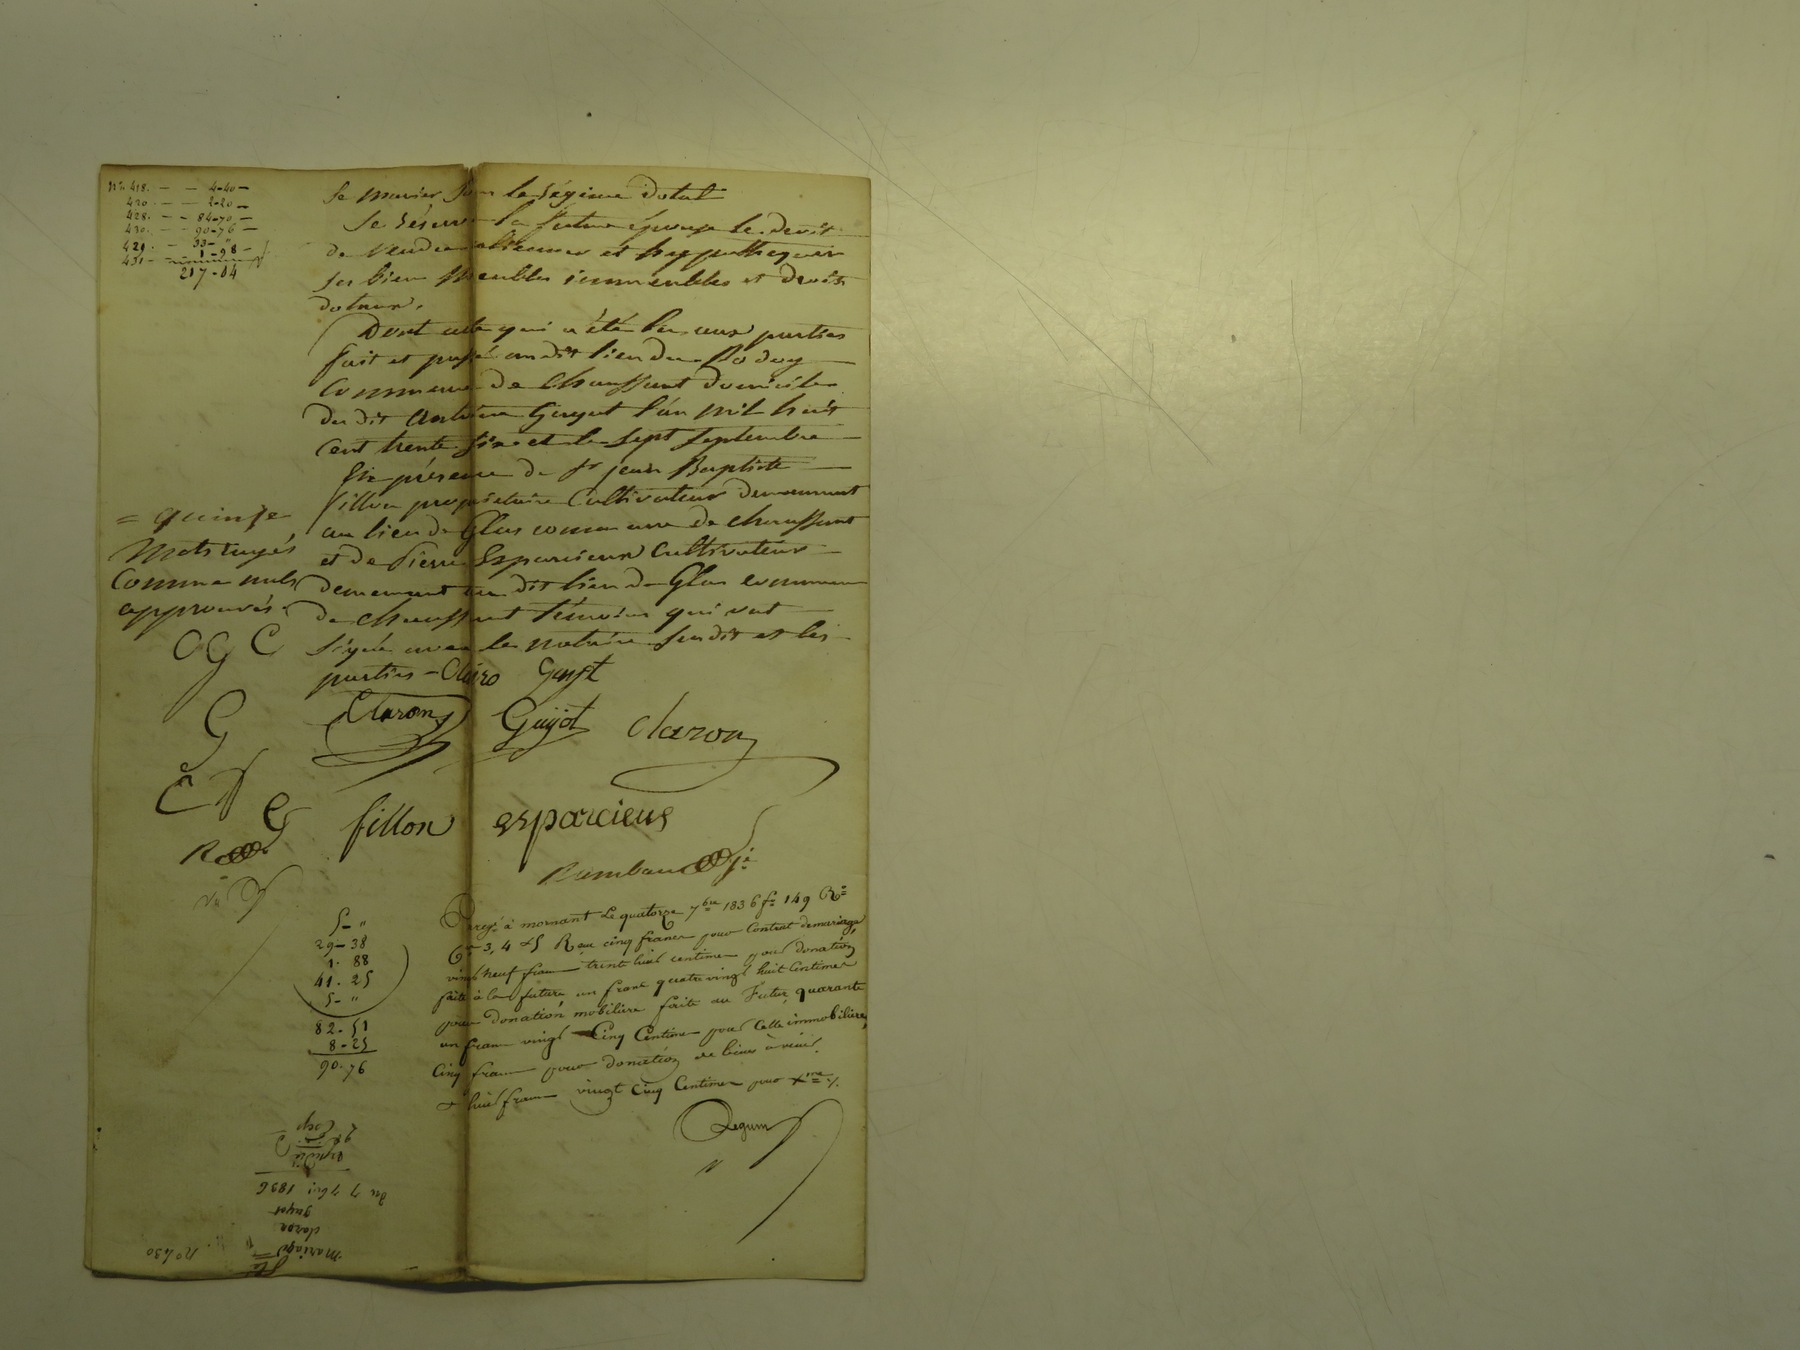 N° 418. — — 4-40 —
420. — — 2-20 —
428. — — 84-70 —
430. — — 90-76 —
429. — 33 - "
431 — 1-98 —
217-04
Se marier sous le régime dotal
Se réserve la future épouse le droit
de vendre aliéner et hyppothequer
ses bien meubles immeubles et droits
dotaux.
Dont acte qui a été lu aux parties
fait et passé audit lieu du
Commune de Chaussant domicile
du dit Antoine Guyot l'an mil huit
cent trente six et le sept septembre
En présence de Sr jean Baptiste
fillon propriétaire Cultivateur demeurant
au lieu de Glas commune de chaussant
et de Pierre Esparcieux Cultivateur
demeurant au dit lieu de Glas commune
de chaussant témoins qui ont
signé avec le notaire susdit et les
parties = Claro Guyot
= quinze
Mots rayés
Comme nuls
approuvés.
OG C
G
Claron Guyot claron
fillon esparcieus
Rambaud
Vu
Enregé à mornant Le quatorze 7bre 1836 f° 149 R°
Ces 3, 4 & 5 Reçu cinq francs pour Contrat de mariage,
vingt neuf francs trente huit centimes pour donation
faite à la future, un franc quatre vingt huit Centimes
pour donation mobilière faite au Futur, quarante
un francs vingt Cinq Centimes pour Celle immobilière,
Cinq francs pour donation de biens à venir.
& huit francs vingt Cinq Centimes pour Xme %.
5- "
29-38
1. 88
41. 25
5- "
82-51
8-25
90.76
Legum
du 7 7bre 1836
guyot
claron
Mariage
N° 430